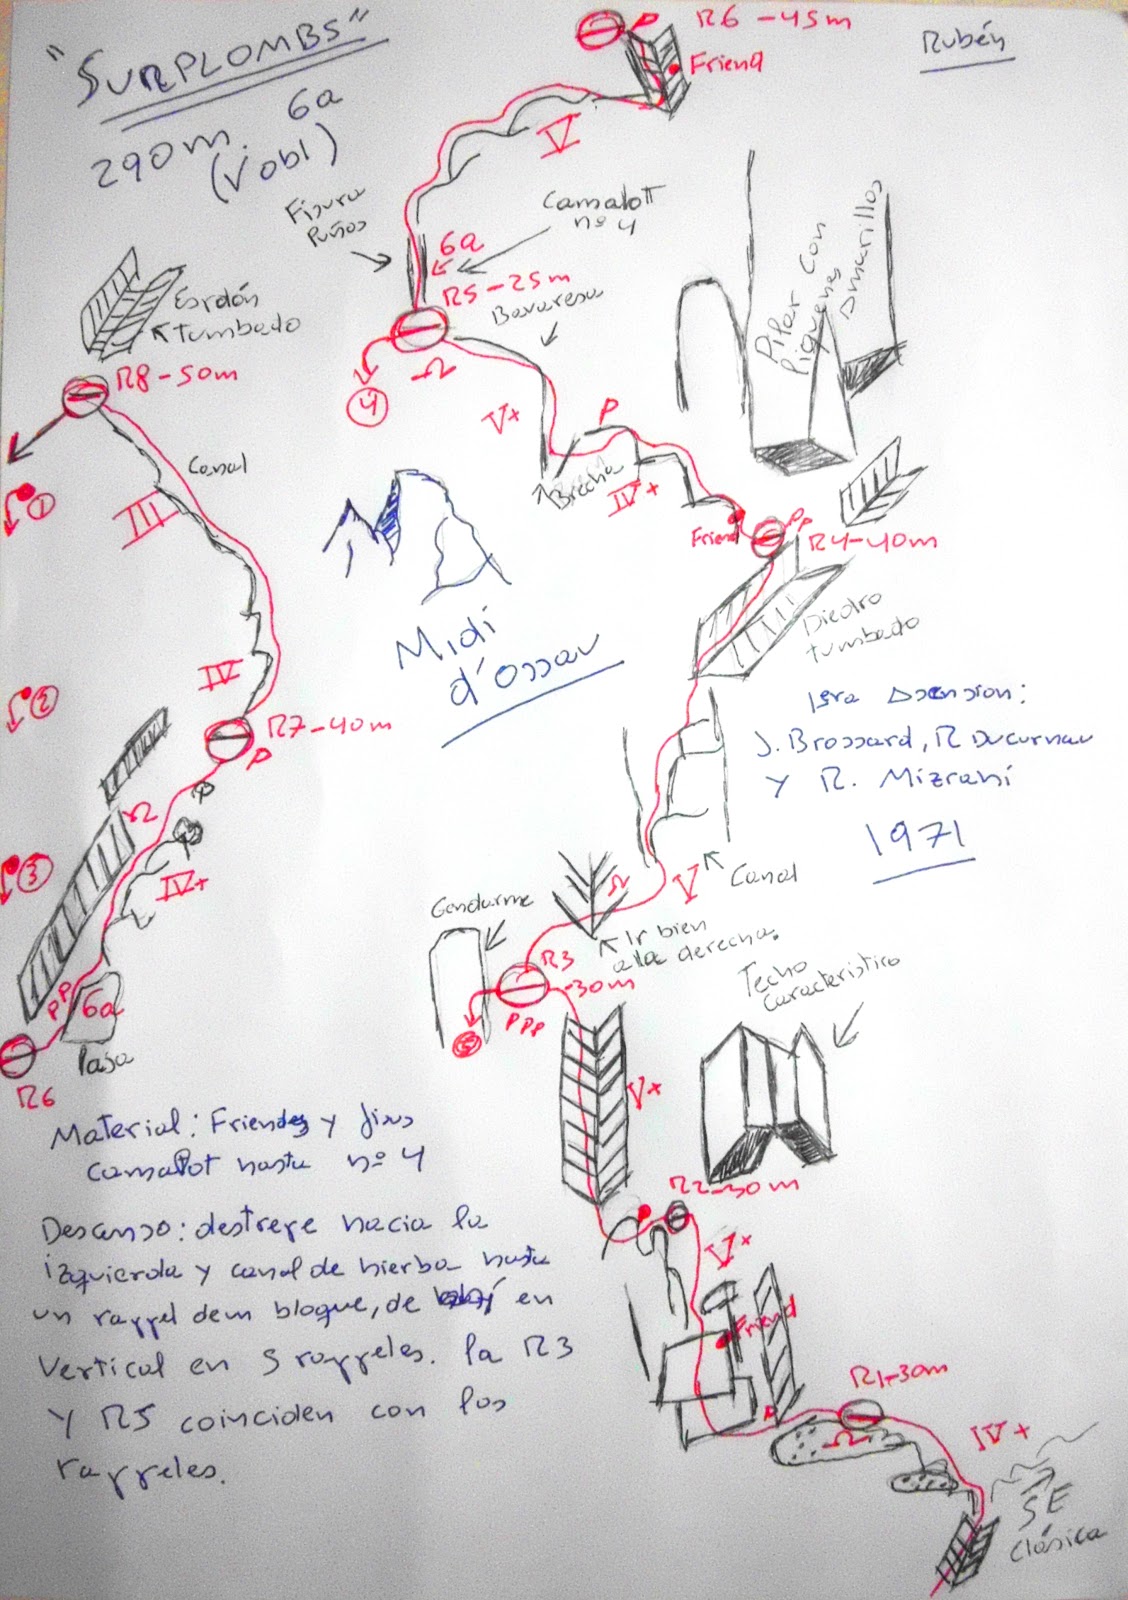 "SURPLOMBS"
290m. 6a
(V obl)
Rubén
R6 - 45m
P
Friend
V
Fisura
Puños
Camalott
nº 4
6a
R5 - 25m
Bavaresa
4
Ω
V+
P
Brecha
IV+
Friend
PP
R4 - 40m
Pilar con
Piquenes
Amarillos
Espolón
tumbado
R8 - 50m
Canal
III
1
2
IV
R7 - 40m
P
3
IV+
PP
6a
Placa
R6
Midi
d'Ossau
Diedro
tumbado
1era Ascension:
J. Brossard, R Ducurnau
y R. Mizrani
1971
Canal
V
Ω
Gendarme
Ir bien
a la derecha.
R3
-30m
PPP
5
Techo
Caracteristico
V+
R2 - 30m
V+
Friend
P
R1 - 30m
Ω
IV+
SE
Clásica
Material: Friends y fisus
camalot hasta nº 4
Descanso: destrepe hacia la
izquierda y canal de hierba hasta
un rappel de un bloque, de ahí en
Vertical en 5 rappeles. la R3
y R5 coinciden con los
rappeles.